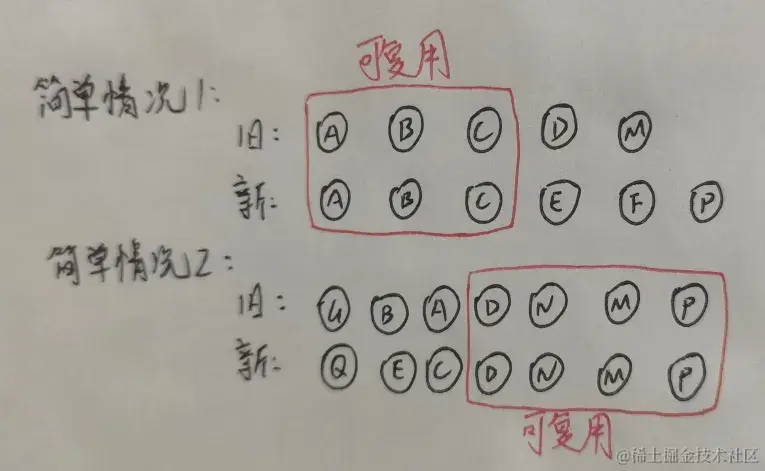 可复用
简单情况1:
旧: A B C D M
新: A B C E F P
简单情况2:
旧: G B A D N M P
新: Q E C D N M P
可复用
@稀土掘金技术社区